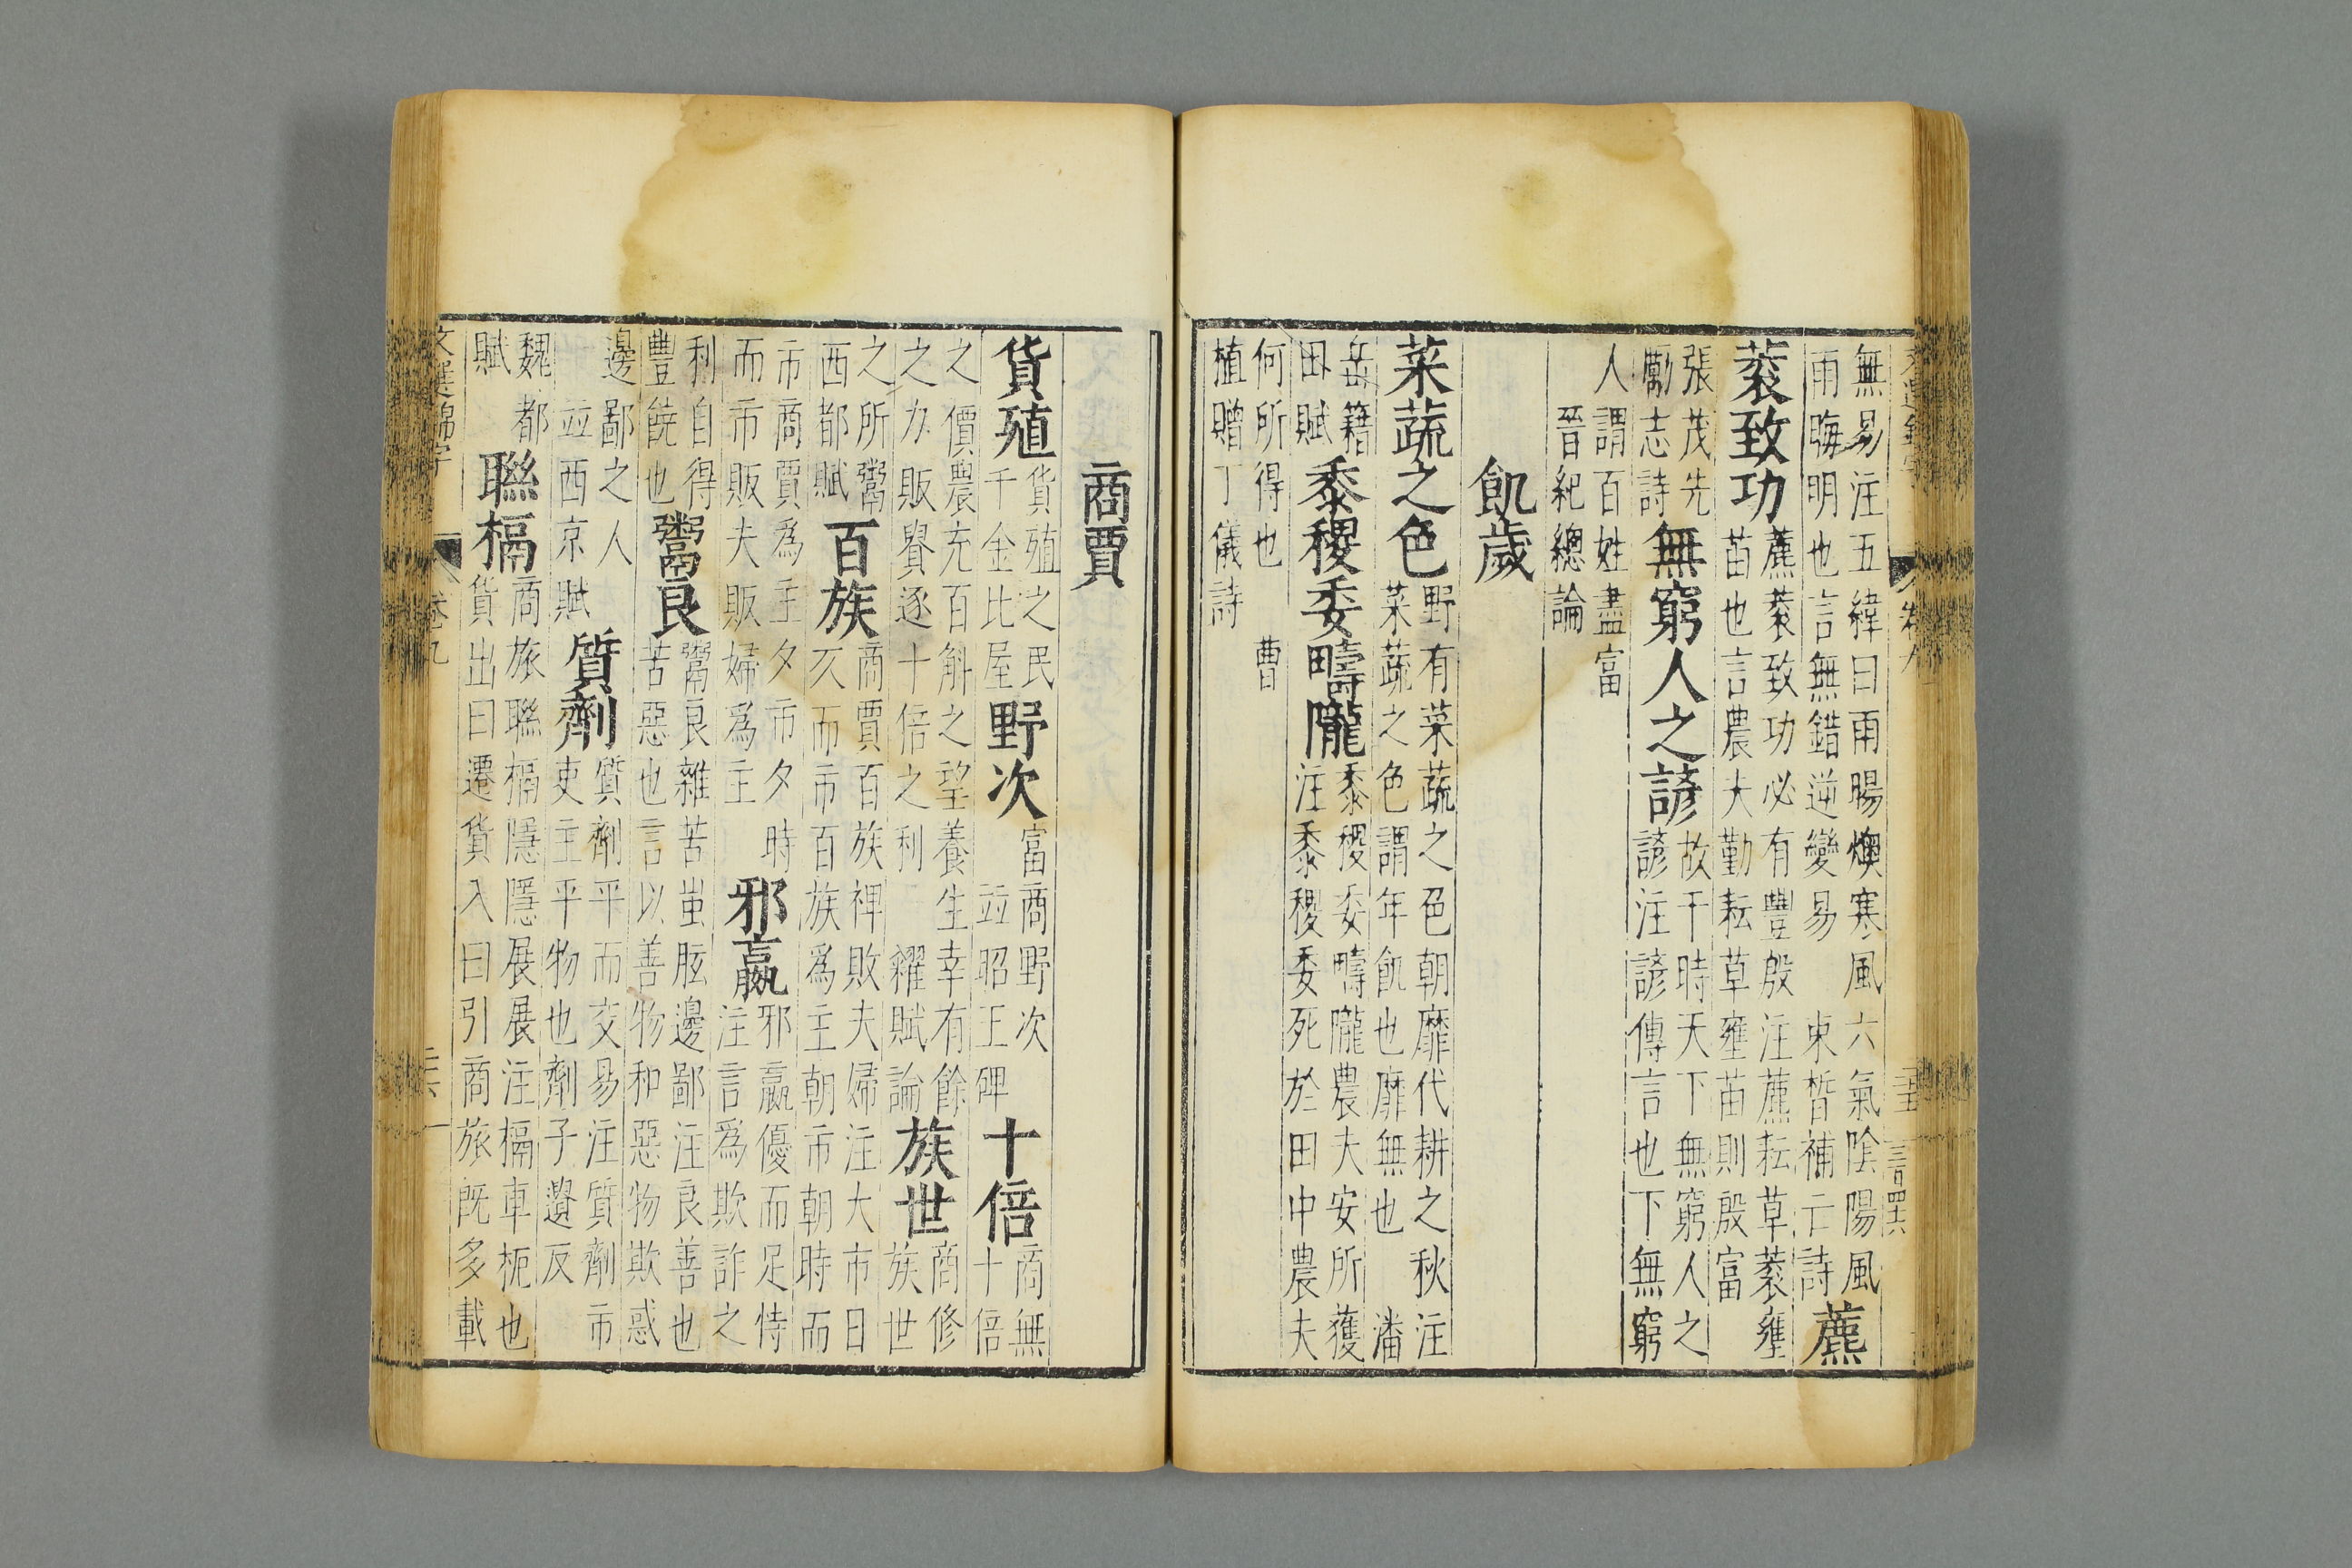 無易注五緯曰雨暘燠寒風六氣陰陽風
雨晦明也言無錯逆變易 束皙補亡詩
藨
蔉致功
藨蔉致功必有豐殷注藨耘草蔉壅
苗也言農夫勤耘草壅苗則殷富
張茂先
勵志詩
無窮人之諺
故干時天下無窮人之
諺注諺傳言也下無窮
人謂百姓盡富
晉紀總論
飢歲
菜蔬之色
野有菜蔬之色朝靡代耕之秋注
菜蔬之色謂年飢也靡無也 潘
岳籍
田賦
黍稷委疇隴
黍稷委疇隴農夫安所獲
注黍稷委死於田中農夫
何所得也 曹
植贈丁儀詩
商賈
貨殖
貨殖之民
千金比屋
野次
富商野次
並昭王碑
十倍
商無
十倍
之價農充百斛之望養生幸有餘
之力販鬻逐十倍之利 糴賦論
族世
商修
族世
之所鬻
西都賦
百族
商賈百族裨敗夫婦注大市日
仄而市百族為主朝市朝時而
市商賈為主夕市夕時
而市販夫販婦為主
邪嬴
邪嬴優而足恃
注言為欺詐之
利自得
豐饒也
鬻良
鬻良雜苦蚩眩邊鄙注良善也
苦惡也言以善物和惡物欺惑
邊鄙之人
並西京賦
質劑
質劑平而交易注質劑市
吏主平物也劑子遺反
魏都
賦
聯槅
商旅聯槅隱隱展展注槅車枙也
貨出曰遷貨入曰引商旅既多載
文選錦字
卷九